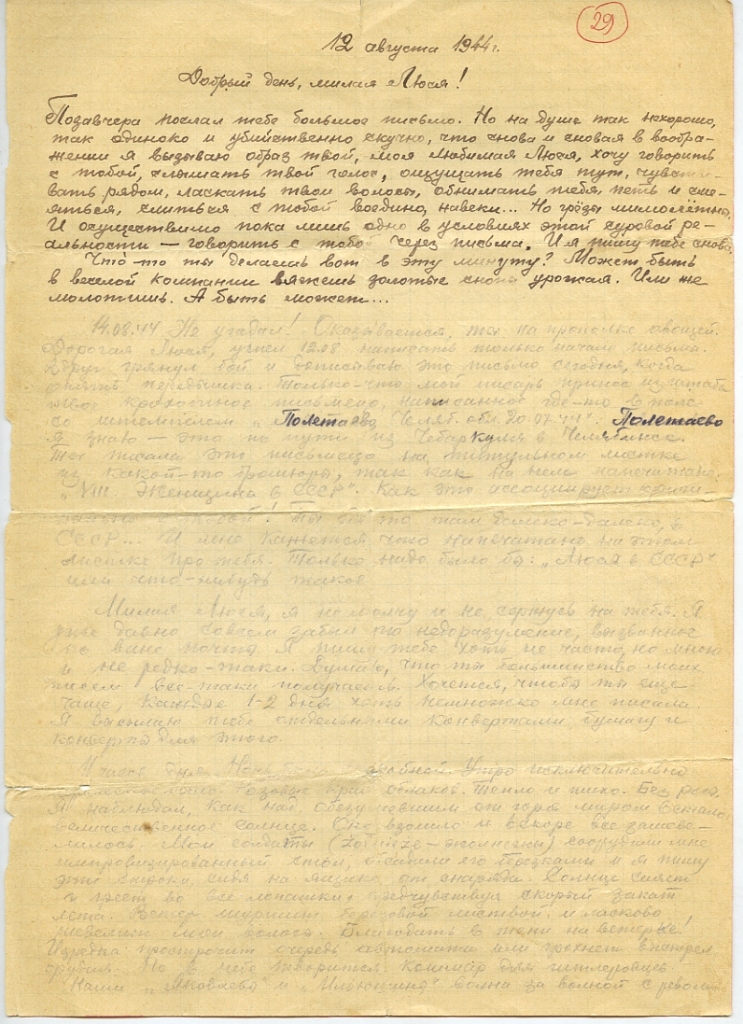 29
12 августа 1944 г.
Добрый день, милая Люся!
Позавчера послал тебе большое письмо. Но на душе так нехорошо,
так одиноко и убийственно скучно, что снова и сновая в вообра-
жении я вызываю образ твой, моя любимая Люся, хочу говорить
с тобой, слышать твой голос, ощущать тебя тут, чувст-
вовать рядом, ласкать твои волосы, обнимать тебя, петь и сме-
яться, слиться с тобой воедино, навеки... Но грёзы мимолётны.
И осуществимо пока лишь одно в условиях этой суровой ре-
альности — говорить с тобой через письма. И я пишу тебе снова.
Что-то ты делаешь вот в эту минуту? Может быть
в веселой компании вяжешь золотые снопы урожая. Или же
молотишь. А быть может...
14.08.44 Не угадал! Оказывается, ты на прополке овощей.
Дорогая Люся, успел 12.08 написать только начало письма.
Вдруг грянул бой и дописываю это письмо сегодня, когда
опять передышка. Только-что мой писарь принес из штаба
твое крохотное письмецо, написанное где-то в поле
со штемпелем „Полетаево Челяб. обл. 20.07.44". Полетаево
Я знаю — это по пути из Чебаркуля в Челябинск.
Ты писала это письмецо на титульном листке
из какой-то брошюры, так как на нем напечатано:
„VIII. Женщина в СССР". Как это ассоциирует
с тобой! Ты ведь там далеко-далеко, в
СССР... И мне кажется что напечатано на этом
листке про тебя. Только надо было бы: „Люся в СССР"
или что-нибудь такое.
Милая Люся, я не и не сержусь на тебя. Я
уже давно совсем забыл то недоразумение, вызванное
по вине почты. Я пишу тебе хоть не часто, но много
и не редко-таки. Думаю, что ты большинство моих
писем все-таки получаешь. Хочется, чтобы ты еще
чаще, каждые 1-2 дня хоть немножко мне писала.
Я высылаю тебе отдельными конвертами бумагу и
конверты для этого.
Утро исключительно
Розовые края облаков. Тепло и тихо. Без
Я наблюдал, как над обезумевшим от горя миром вставало
величественное солнце. Оно взошло и вскоре все зашеве-
лилось. Мои солдаты соорудили мне
импровизированный стол, обставили его березками и я пишу
эти строки, сидя на ящике от снаряда. Солнце сияет
и греет во все лопатки, предчувствуя скорый закат
лета. Ветер шуршит березовой листвой и ласково
шевелит мои волосы. Благодать в тени на ветерке!
Изредка прострочит очередь автомата или грохнет выстрел
орудия. Но в небе творится кошмар для гитлеровцев.
Наши „Яковлевы и Ильюшины" волна за волной с